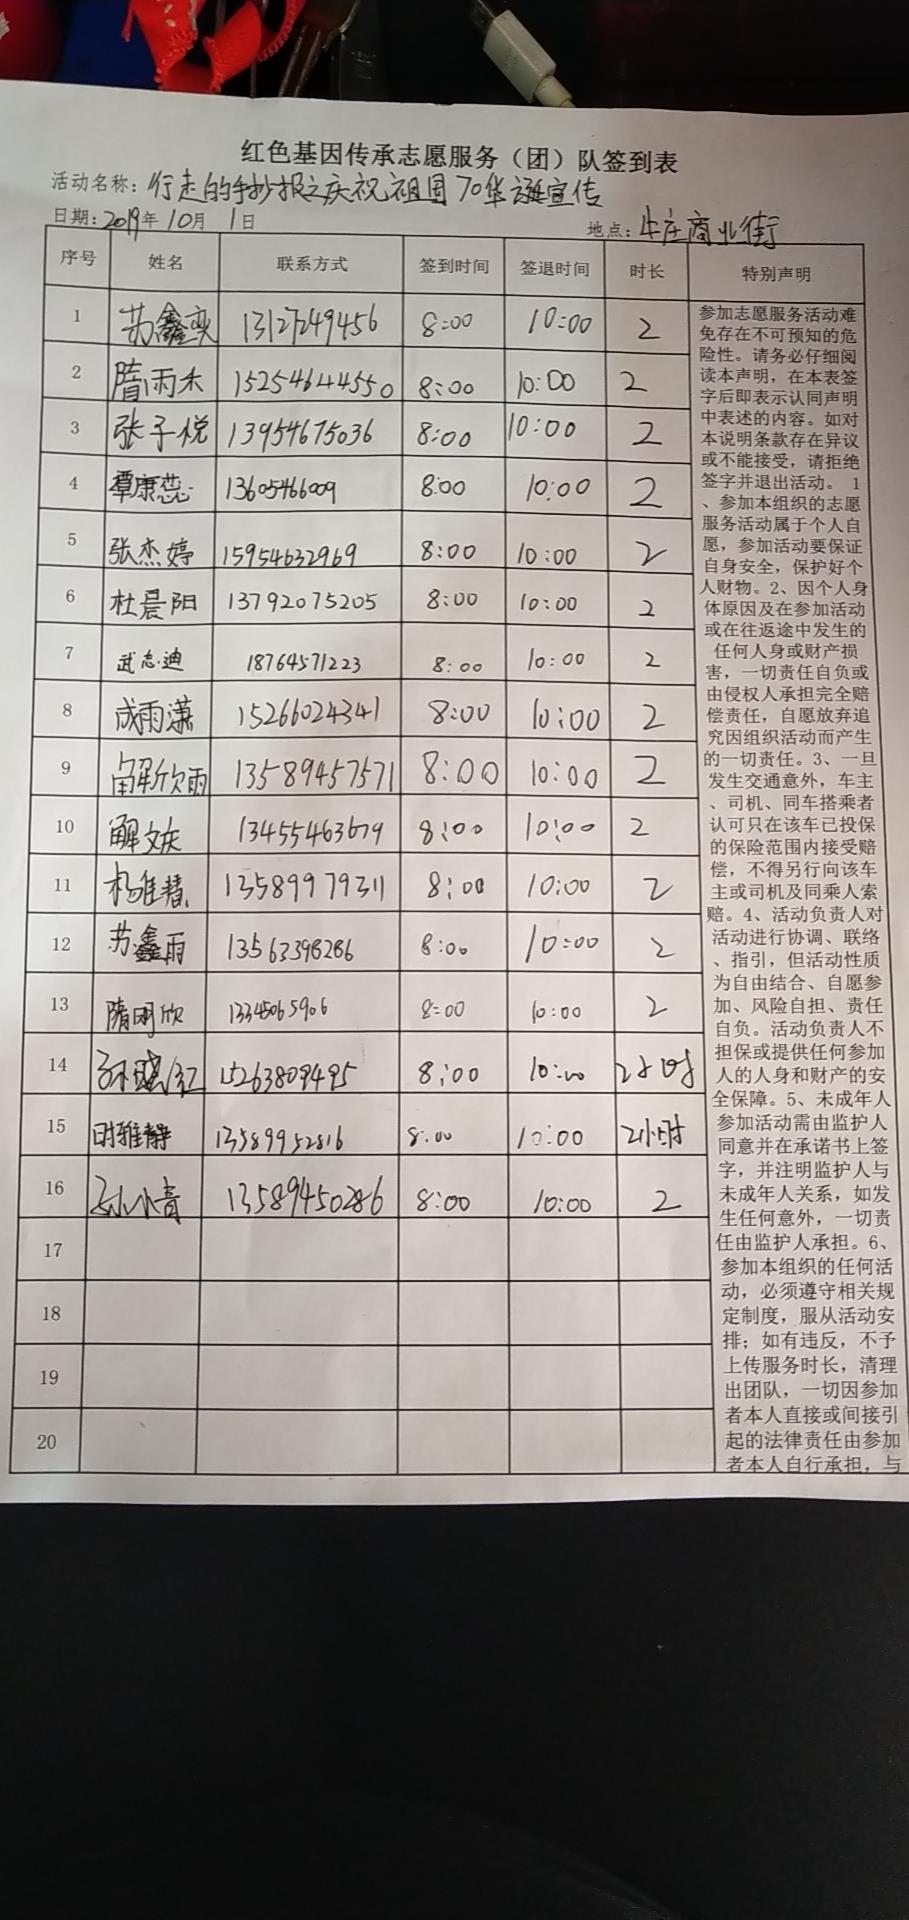 红色基因传承志愿服务（团）队签到表
活动名称：行走的手抄报之庆祝祖国70华诞宣传
日期：2019年10月1日 地点：牛庄商业街
序号 姓名 联系方式 签到时间 签退时间 时长 特别声明
1 苏鑫奕 13127249456 8:00 10:00 2
2 隋雨禾 15254644550 8:00 10:00 2
3 张子悦 13954675036 8:00 10:00 2
4 覃康蕊 13605466009 8:00 10:00 2
5 张杰婷 15954632969 8:00 10:00 2
6 杜晨阳 13792075205 8:00 10:00 2
7 武志迪 18764571223 8:00 10:00 2
8 成雨潇 15266024341 8:00 10:00 2
9 欣雨 13589457571 8:00 10:00 2
10 解文庆 13455463679 8:00 10:00 2
11 杨雅慧 13589979311 8:00 10:00 2
12 苏鑫雨 13563398286 8:00 10:00 2
13 隋明欣 13345065906 8:00 10:00 2
14 孙红 15263809495 8:00 10:00 2小时
15 时雅静 13589952816 8:00 10:00 2小时
16 孙小青 13589450286 8:00 10:00 2
17
18
19
20
参加志愿服务活动难
免存在不可预知的危
险性。请务必仔细阅
读本声明，在本表签
字后即表示认同声明
中表述的内容。如对
本说明条款存在异议
或不能接受，请拒绝
签字并退出活动。 1
、参加本组织的志愿
服务活动属于个人自
愿，参加活动要保证
自身安全，保护好个
人财物。2、因个人身
体原因及在参加活动
或在往返途中发生的
任何人身或财产损
害，一切责任自负或
由侵权人承担完全赔
偿责任，自愿放弃追
究因组织活动而产生
的一切责任。3、一旦
发生交通意外，车主
、司机、同车搭乘者
认可只在该车已投保
的保险范围内接受赔
偿，不得另行向该车
主或司机及同乘人索
赔。4、活动负责人对
活动进行协调、联络
、指引，但活动性质
为自由结合、自愿参
加、风险自担、责任
自负。活动负责人不
担保或提供任何参加
人的人身和财产的安
全保障。5、未成年人
参加活动需由监护人
同意并在承诺书上签
字，并注明监护人与
未成年人关系，如发
生任何意外，一切责
任由监护人承担。6、
参加本组织的任何活
动，必须遵守相关规
定制度，服从活动安
排；如有违反，不予
上传服务时长，清理
出团队，一切因参加
者本人直接或间接引
起的法律责任由参加
者本人自行承担，与